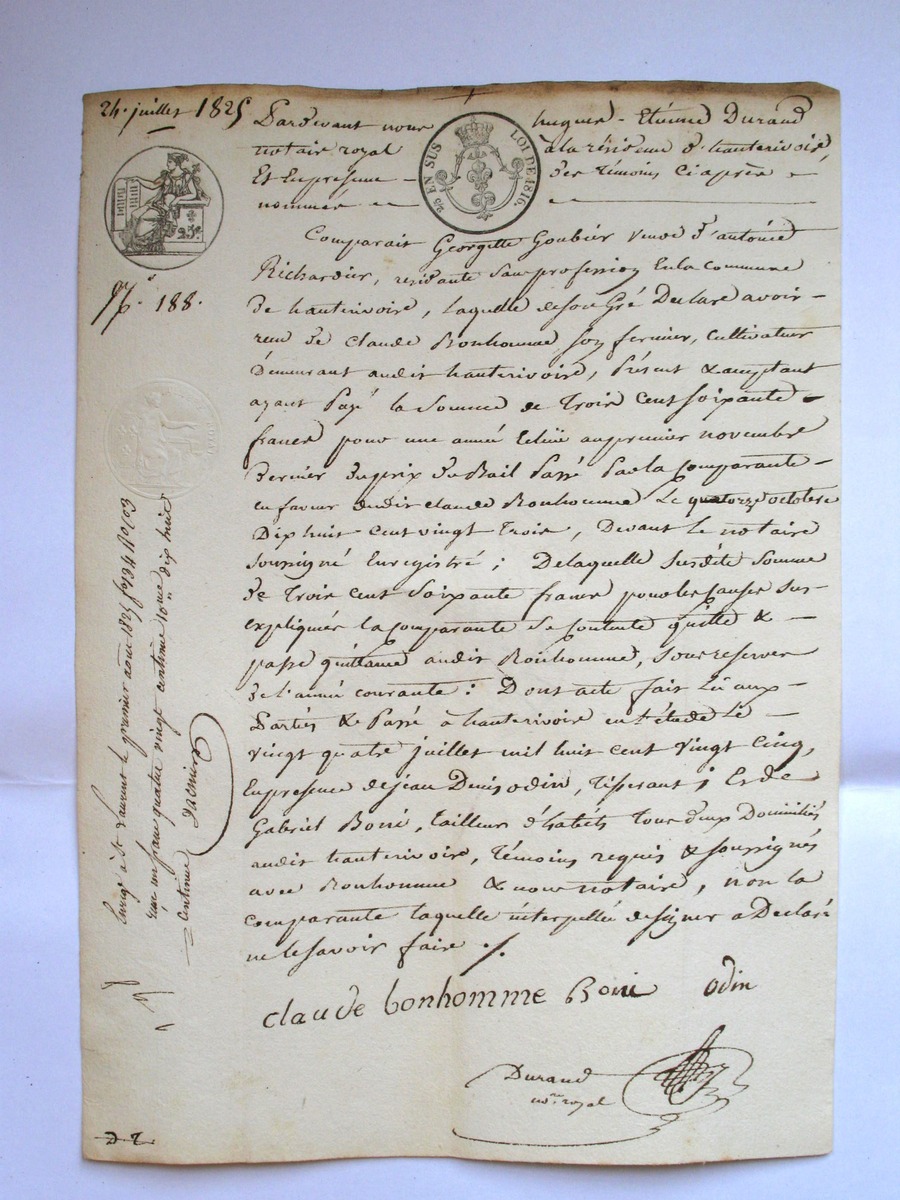 24 juillet 1825
Pardevant nous hugues - Etienne Durand
notaire royal à la résidence d'hauterivoire,
Et En presence - des témoins ci après
nommés
25 EN SUS LOI DE 1816.
25c.
No. 188.
Comparait Georgette Goubier veuve d'antoine
Richardier, residante sans profession En la commune
de hauterivoire, laquelle de son Gré Declare avoir
reçu de claude Bonhomme son fermier, cultivateur
demeurant audit hauterivoire, Présent & acceptant
ayant Payé la Somme de Trois Cent Soixante
francs pour une année Echüe au premier novembre
dernier du prix du Bail Passé Par la Comparante
en faveur dudit claude Bonhomme le quatorze octobre
Dix huit cent vingt Trois, Devant le notaire
soussigné Enregistré ; De laquelle Susdite Somme
de Trois Cent Soixante francs pour les causes sus-
expliquées la Comparante Se Contente Quitte &
passe Quittance audit Bonhomme, sous reserver
de l'année courante : Dont acte fait Lû aux
Parties & Passé à hauterivoire en l'étude le
vingt quatre juillet mil huit cent vingt Cinq,
En presence de jean Denis odin, Tisserant ; Et de
Gabriel Boni, Tailleur d'habits Tous deux Domiciliés
audit hauterivoire, Témoins requis & soussignés
avec Bonhomme & nous notaire, non la
comparante laquelle interpellée de signer a Declaré
ne le savoir faire ./.
claude bonhomme Boni odin
Durand
nore royal
Enregé à St Laurent le premier aout 1825 fo 134 Ro C 3
reçu un franc quatre vingt centimes 10me dix huit
centimes
D T